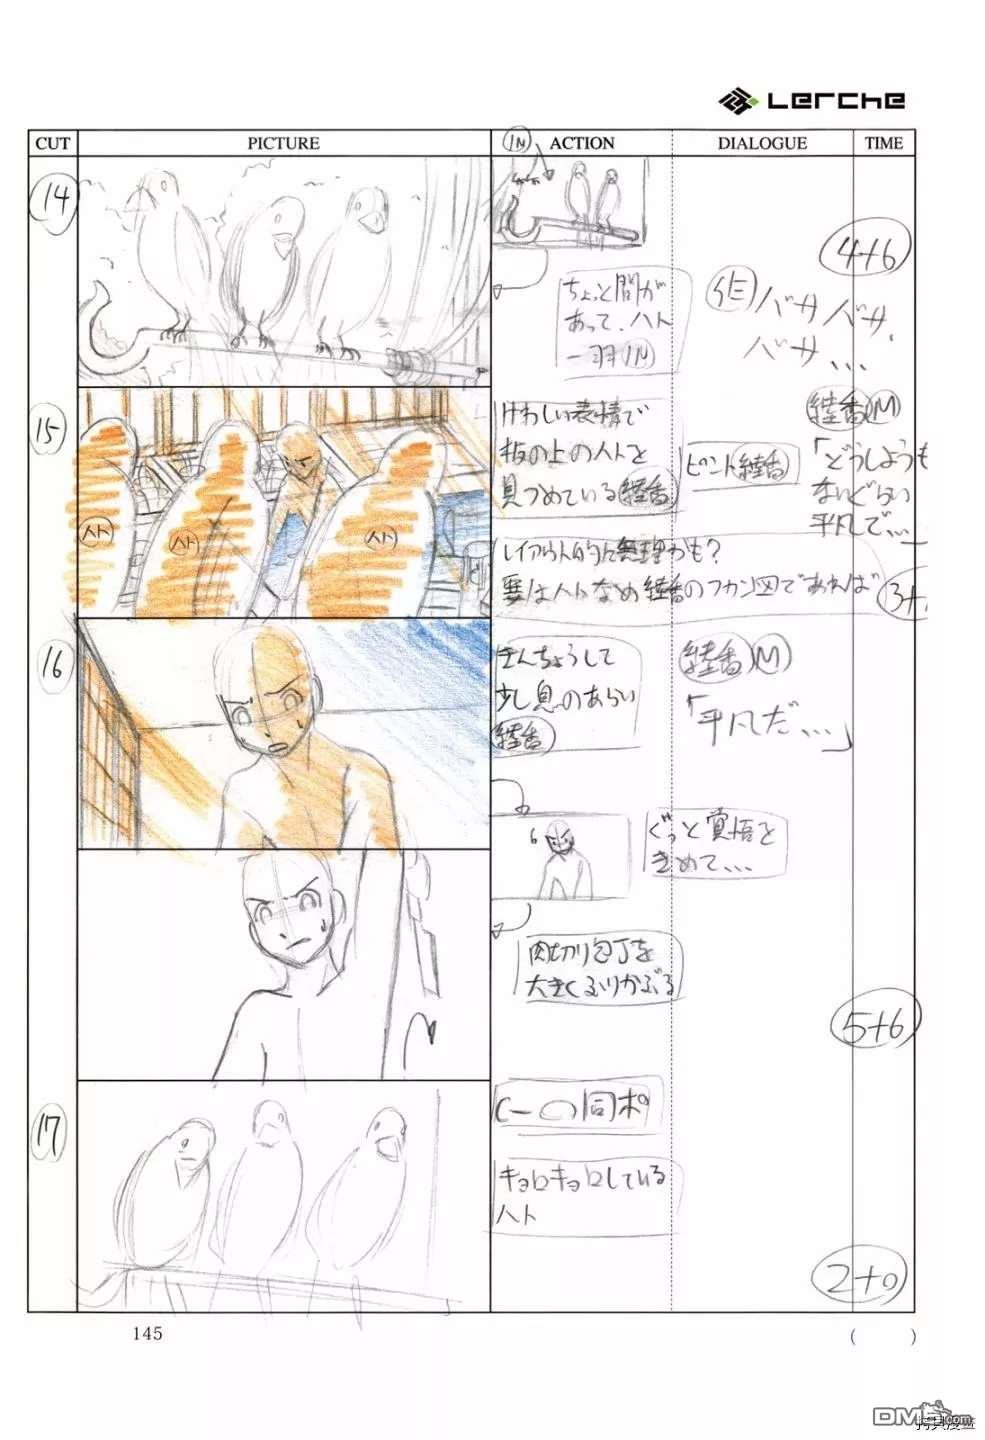 Lerche
CUT
PICTURE
ACTION
DIALOGUE
TIME
14
IN
ちょっと間が
あって、ハト
一羽IN
SE バサバサ、
バサ、、、
4+6
15
ハト
ハト
ハト
けわしい表情で
板の上のハトを
見つめている
ピント
M
「どうしようも
ないぐらい
平凡で、、、」
レイアウト的に無理かも?
要はハトなめ
のフカン図であれば
3+
16
きんちょうして
少し息のあらい
M
「平凡だ、、、」
ぐっと覚悟を
きめて、、、
肉切り包丁を
大きくふりかぶる
5+6
17
の同ポ
キョロキョロしている
ハト
2+0
145
( )
拷贝漫画